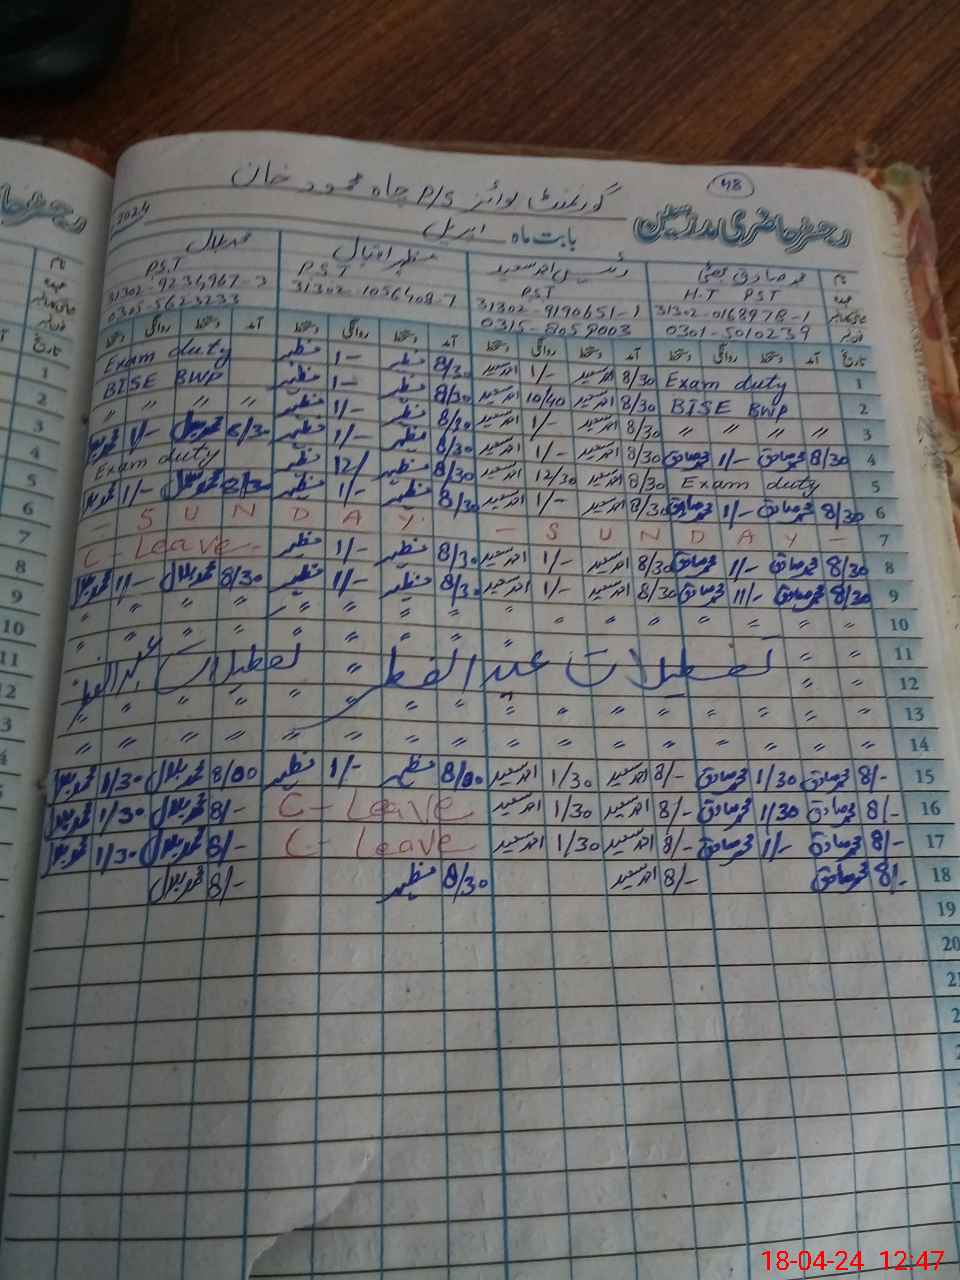 48
گورنمنٹ بوائز P/S چاہ محمود خان
رجسٹر حاضری مدرسین بابت ماہ اپریل 2024
نام محمد صادق مظہر اقبال محمد بلال
عہدہ H.T PST PST P.S.T P.S.T
31302-0168978-1 31302-9190651-1 31302-1056408-7
0301-5010239 0315-8058003 0305-5623233
تاریخ آمد دستخط روانگی دستخط آمد دستخط روانگی دستخط آمد دستخط روانگی دستخط آمد دستخط روانگی دستخط
1 Exam duty 8/30 احمد سعید 1/- احمد سعید 8/30 مظہر 1- مظہر Exam duty
2 BISE BWP 8/30 احمد سعید 10/40 احمد سعید 8/30 مظہر 1- مظہر BISE BWP
3 〃 〃 〃 〃 8/30 احمد سعید 1/- احمد سعید 8/30 مظہر 1/- مظہر 〃 〃 〃 〃
4 8/30 محمد صادق 1/- محمد صادق 8/30 احمد سعید 1/- احمد سعید 8/30 مظہر 1/- مظہر 8/30 محمد بلال 1/- محمد بلال
5 Exam duty 8/30 احمد سعید 12/30 احمد سعید 8/30 مظہر 12/ مظہر Exam duty
6 8/30 محمد صادق 1/- محمد صادق 8/30 احمد سعید 1/- احمد سعید 8/30 مظہر 1/- مظہر 8/30 محمد بلال 1/- محمد بلال
7 - S U N D A Y - - S U N D A Y
8 8/30 محمد صادق 1/- محمد صادق 8/30 احمد سعید 1/- احمد سعید 8/30 مظہر 1/- مظہر C - Leave -
9 8/30 محمد صادق 11/- محمد صادق 8/30 احمد سعید 1/- احمد سعید 8/30 مظہر 11/- مظہر 8/30 محمد بلال 11- محمد بلال
10 〃 〃 〃 〃 〃 〃 〃 〃 〃 〃 〃 〃 〃 〃 〃
11 〃 〃
12 〃 〃 تعطیلات عید الفطر تعطیلات عید الفطر
13 〃 〃 〃 〃 〃 〃 〃 〃 〃 〃 〃 〃 〃
14 〃 〃 〃 〃 〃 〃 〃 〃 〃 〃 〃 〃 〃 〃 〃 〃
15 8/- محمد صادق 1/30 محمد صادق 8/- احمد سعید 1/30 احمد سعید 8/00 مظہر 1/- مظہر 8/00 محمد بلال 1/30 محمد بلال
16 8/- محمد صادق 1/30 محمد صادق 8/- احمد سعید 1/30 احمد سعید C - Leave 8/- محمد بلال 1/30 محمد بلال
17 8/- محمد صادق 1/- محمد صادق 8/- احمد سعید 1/30 احمد سعید C - Leave 8/- محمد بلال 1/30 محمد بلال
18 8/- محمد صادق 8/- احمد سعید 8/30 مظہر 8/- محمد بلال
19
20
18-04-24 12:47